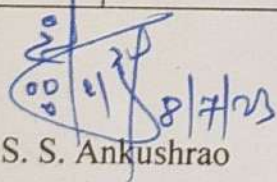 8/7/23
S. S. Ankushrao